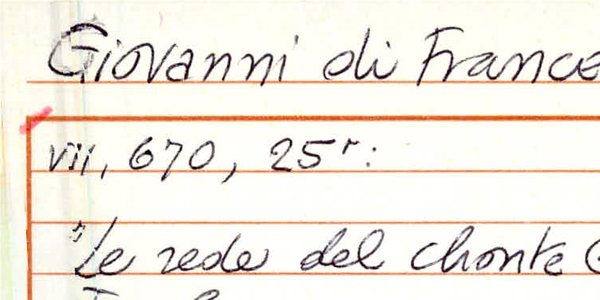 Giovanni di France
vii, 670, 25r:
"Le rede del chonte